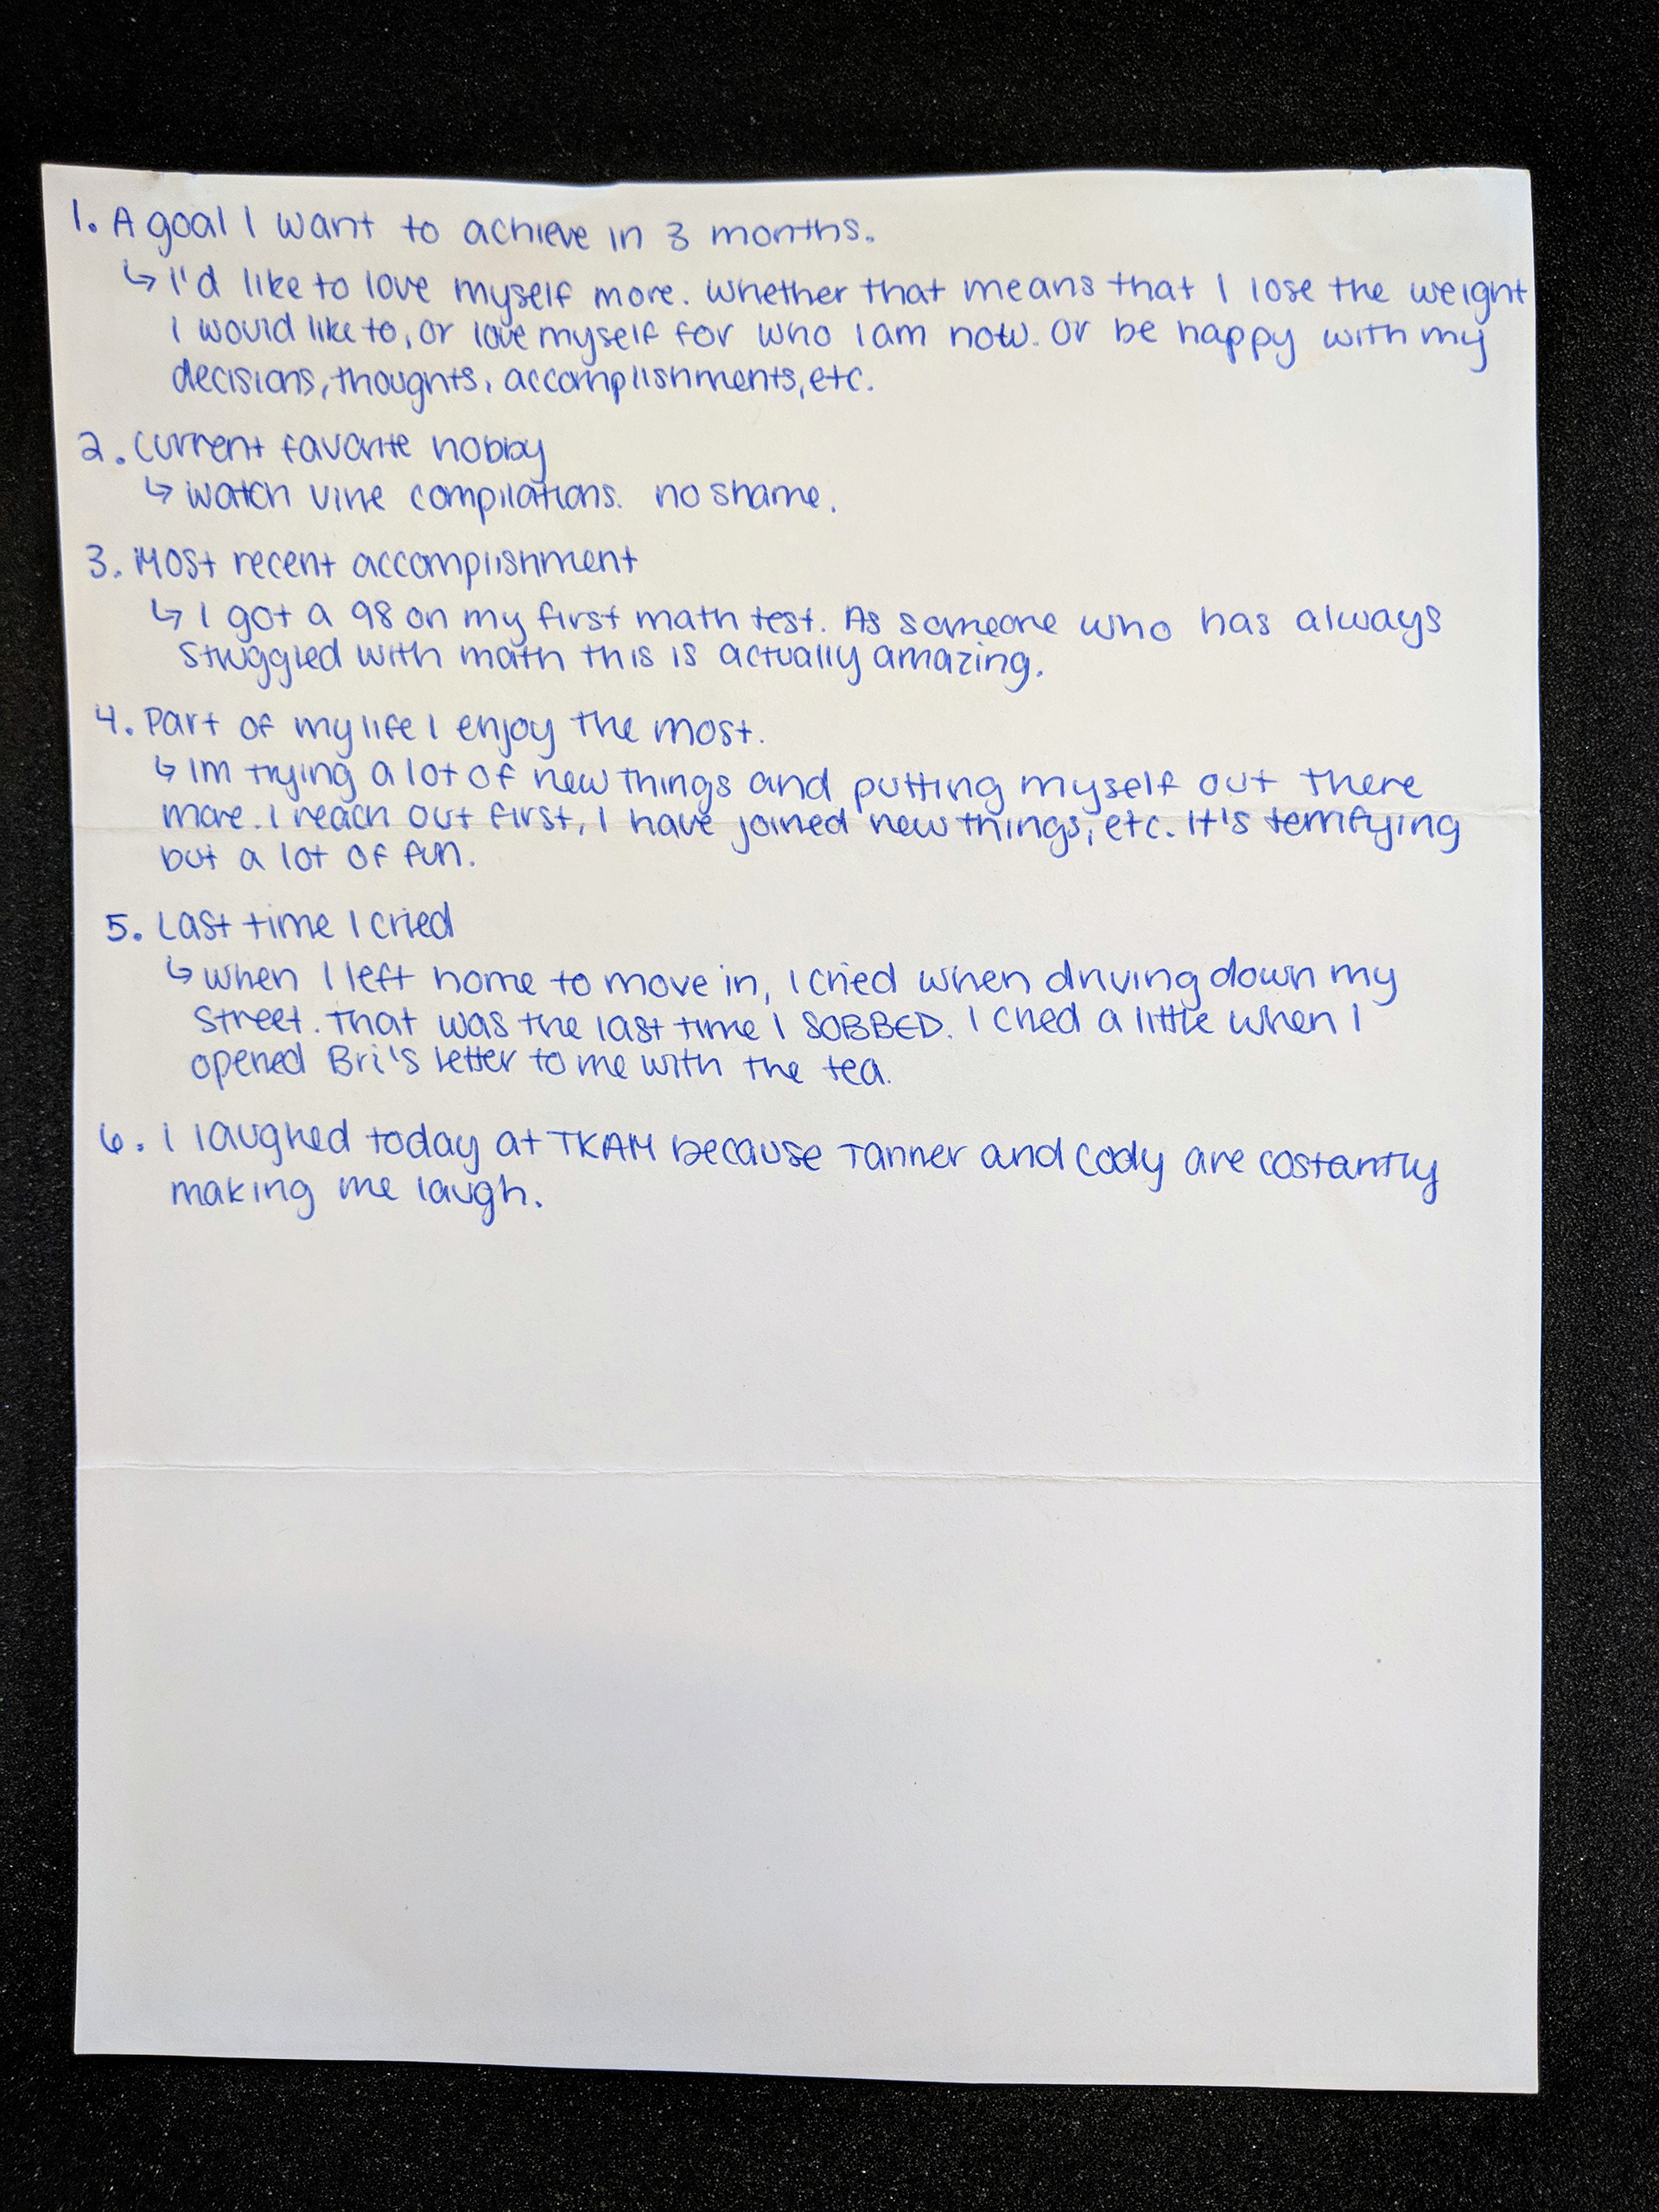 1. A goal I want to achieve in 3 months.
↳ I'd like to love myself more. Whether that means that I lose the weight
I would like to, or love myself for who I am now. Or be happy with my
decisions, thoughts, accomplishments, etc.
2. Current favorite hobby
↳ Watch vine compilations. no shame.
3. Most recent accomplishment
↳ I got a 98 on my first math test. As someone who has always
struggled with math this is actually amazing.
4. Part of my life I enjoy the most.
↳ Im trying a lot of new things and putting myself out there
more. I reach out first, I have joined new things, etc. It's terrifying
but a lot of fun.
5. Last time I cried
↳ when I left home to move in, I cried when driving down my
street. That was the last time I SOBBED. I cried a little when I
opened Bri's letter to me with the tea.
6. I laughed today at TKAM because Tanner and Cody are costantly
making me laugh.